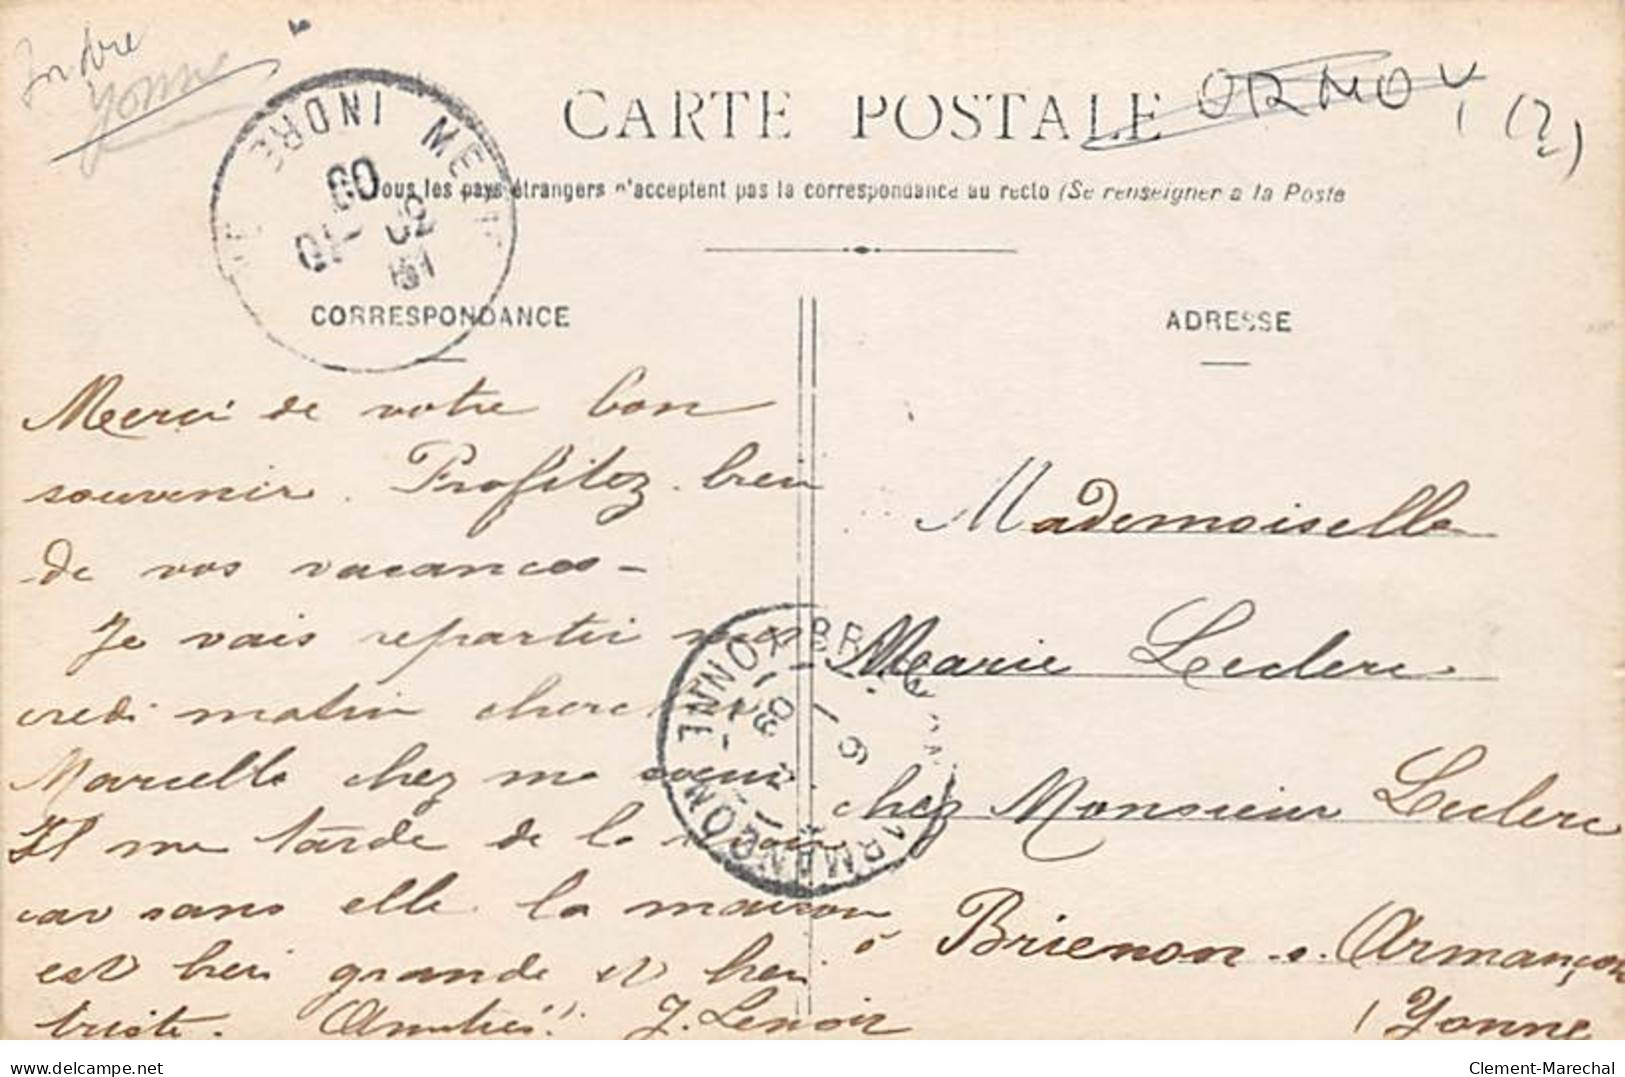 Indre
Yonne
CARTE POSTALE
ORMOY
(2)
Tous les pays étrangers n'acceptent pas la correspondance au recto (Se renseigner a la Poste
INDRE
CORRESPONDANCE
ADRESSE
Merci de votre bon
souvenir. Profitez bien
de vos vacances -
Je vais repartir mer
credi matin chercher
Marcelle chez ma soeur
Il me tarde de la voir
car sans elle la maison
est bien grande et bien
triste. Amitiés. J. Lenoir
YONNE
09
ARMANÇON
Mademoiselle
Marie Leclerc
chez Monsieur Leclerc
à Brienon s. Armançon
(Yonne
delcampe.net
Clement-Marechal